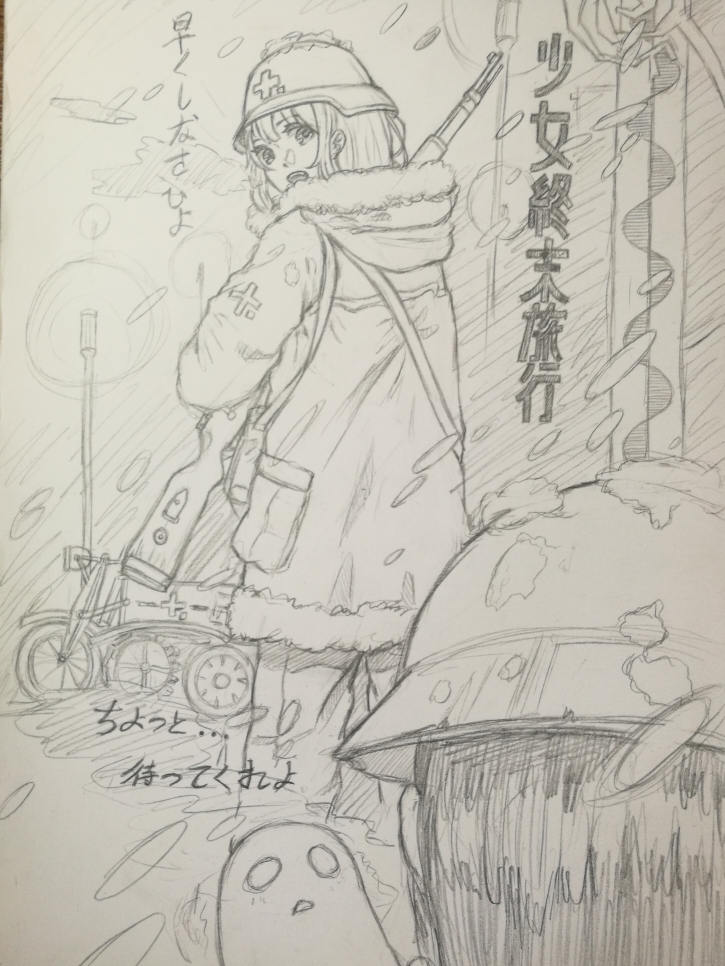 少女終末旅行
早くしなさいよ
ちょっと...
待ってくれよ